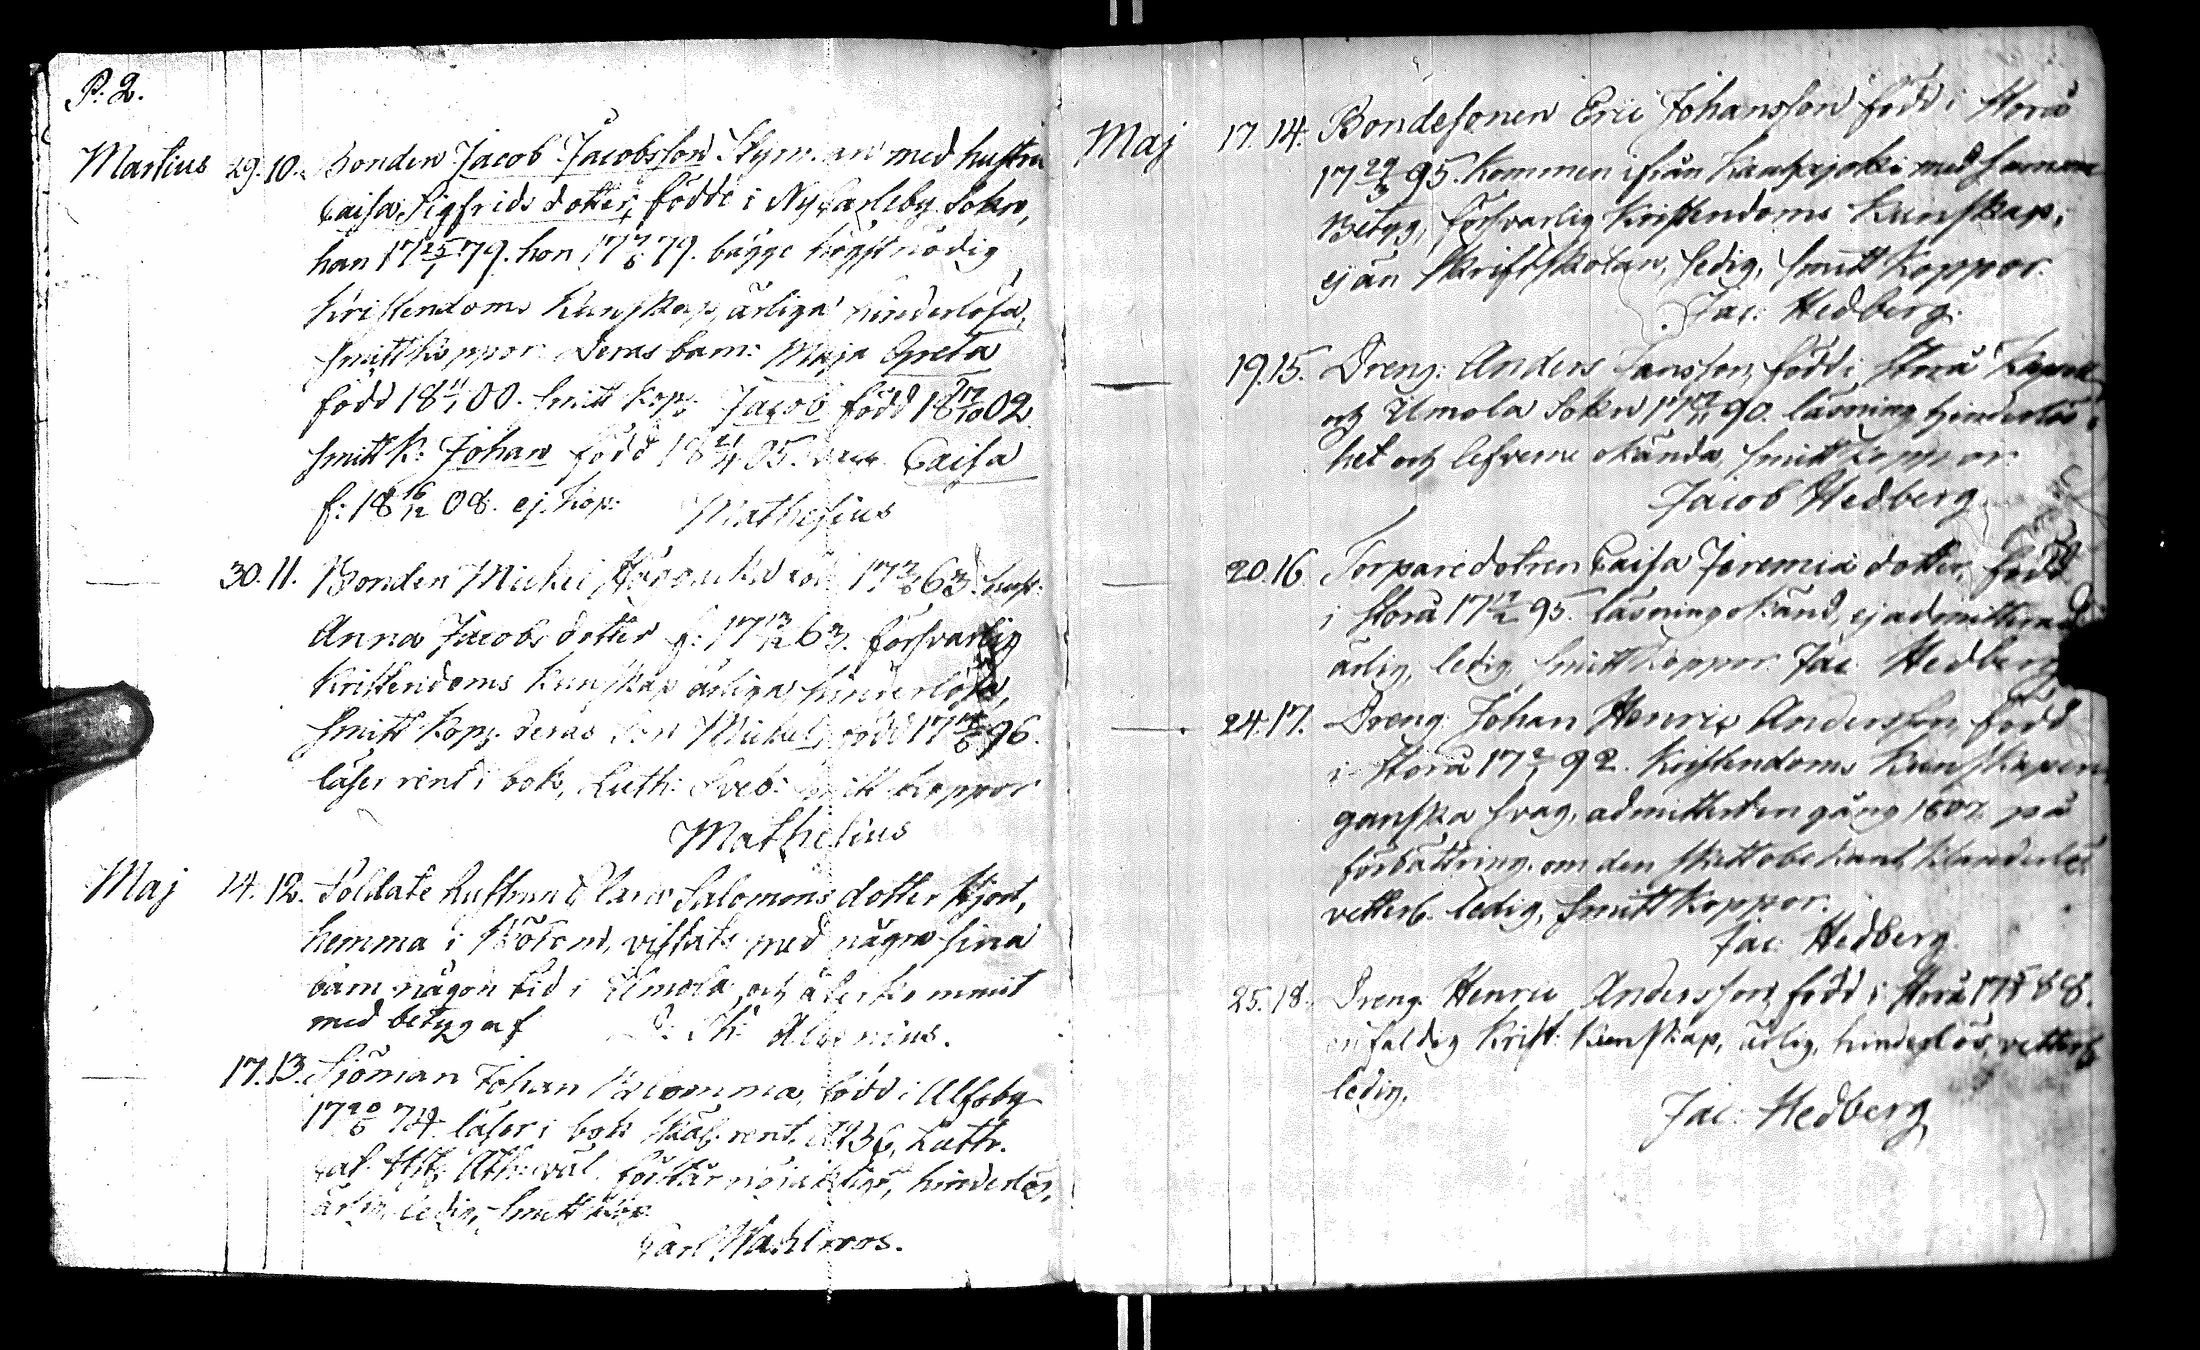 P. 2.
Martius 29. 10. Bonden Jacob Jacobsson med hustru
Caisa Sigfrids dotter, födde i NyCarleby Sokn,
han 17 25/1 79. hon 17 7/6 79. bägge högst nödig
Kristendoms Kunskap, ärliga hinderlösa,
smittkoppor. Deras barn: Maja Greta
född 18 11/1 00. smitt kop: Jacob född 18 17/10 02.
smitt k: Johan född 18 21/4 05. vacc. Caisa
f: 18 16/12 08. ej kop: Mathesius
— 30. 11. Bonden Michel 63 hust:
Anna Jacobs dotter f: 17 13/12 63. försvarlig
Kristendoms Kunskap ärliga hinderlösa,
smitt kop; deras son Michel, född 96.
läser rent i bok, Luth: Sveb: smitt koppor
Mathesius
Maj 14. 12. Soldate hustrun Clara Salomons dotter Hjort,
hemma i vistats med några sina
barn någon tid i Ilmola och återkommit
med betyg af
— 17. 13. Sjöman Johan Blomma, född i Ulfsby
17 20/6 74. läser i bok rent, Luth.
väl. förstår nöjaktigt, hinderlös,
ärlig, ledig, smitt kop.
Carl Wahlroos.
Maj 17. 14. Bondesonen Eric Johansson född i Storå
95. kommen ifrån Kauhajoki med samma
Betyg, försvarlig Kristendoms Kunskap,
ej än Skriftskolan, ledig, smitt koppor.
Jac: Hedberg.
— 19. 15. Dreng: Anders Jansson, född i Storå Kapell
och Ilmola Sokn 90. läsning hinderlös
het och lefverne okända, smitt koppor.
Jacob Hedberg
— 20. 16. Torparedotren Caisa Jeremiæ dotter, född
i Storå 95. läsning okänd, ej admitterad
ärlig, ledig, smitt koppor. Jac Hedberg
— 24. 17. Dreng Johan Henric Andersson, född
i Storå 17 2/1 92. Kristendoms Kunskapen
ganska svag, admitterd en gång 1807 på
förbättring, om den skett obekant,
vetterl. ledig, smitt koppor.
Jac: Hedberg.
25. 18. Dreng Henric Andersson, född i Storå 88.
enfaldig Krist: Kunskap, ärlig, hinderlös, vetterl.
ledig.
Jac: Hedberg